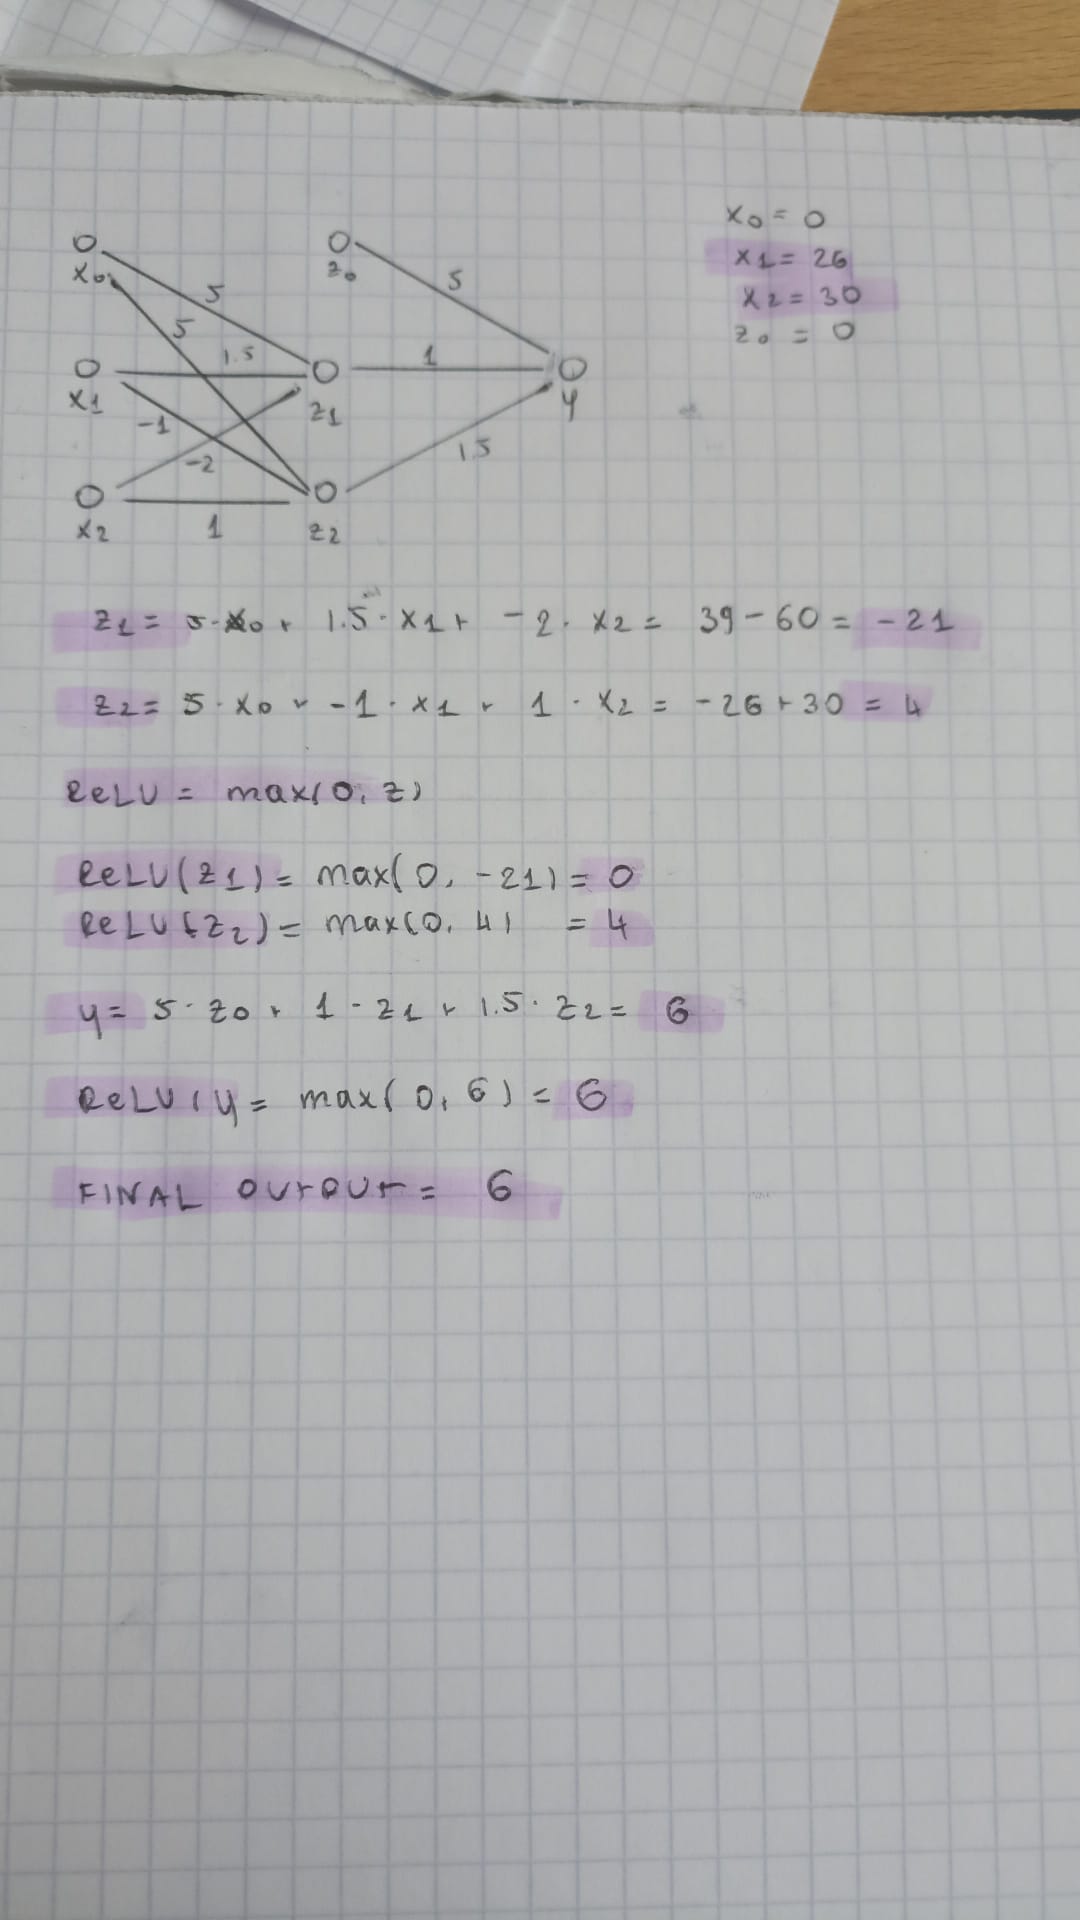 x0 = 0
x1 = 26
x2 = 30
z0 = 0
x0
z0
5
5
5
1.5
1
x1
z1
y
-1
-2
1.5
x2
1
z2
z1 = 5·x0 + 1.5·x1 + -2·x2 = 39-60 = -21
z2 = 5·x0 + -1·x1 + 1·x2 = -26+30 = 4
ReLU = max(0, z)
ReLU(z1) = max(0, -21) = 0
ReLU(z2) = max(0, 4) = 4
y = 5·z0 + 1·z1 + 1.5·z2 = 6
ReLU(y = max(0, 6) = 6
FINAL OUTPUT = 6